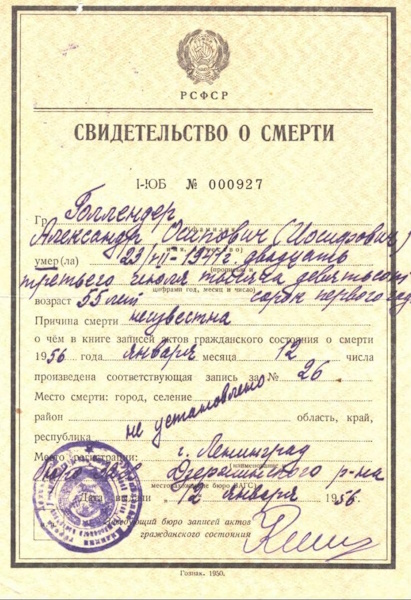 РСФСР
СВИДЕТЕЛЬСТВО О СМЕРТИ
I-ЮБ № 000927
Гр. Голлендер
Александр Осипович (Иосифович)
умер(ла) 23/VII-1941 г. двадцать
третьего июля тысяча девятьсот
цифрами год, месяц и число)
возраст 55 лет сорок первого года
Причина смерти неизвестна
о чём в книге записей актов гражданского состояния о смерти
1956 года января месяца 12 числа
произведена соответствующая запись за № 26
Место смерти: город, селение
не установлено
район область, край,
республика
Место регистрации: г. Ленинград
Дзержинского р-на
Дата выдачи 12 января 1956.
Заведующий бюро записей актов
гражданского состояния
Гознак. 1950.